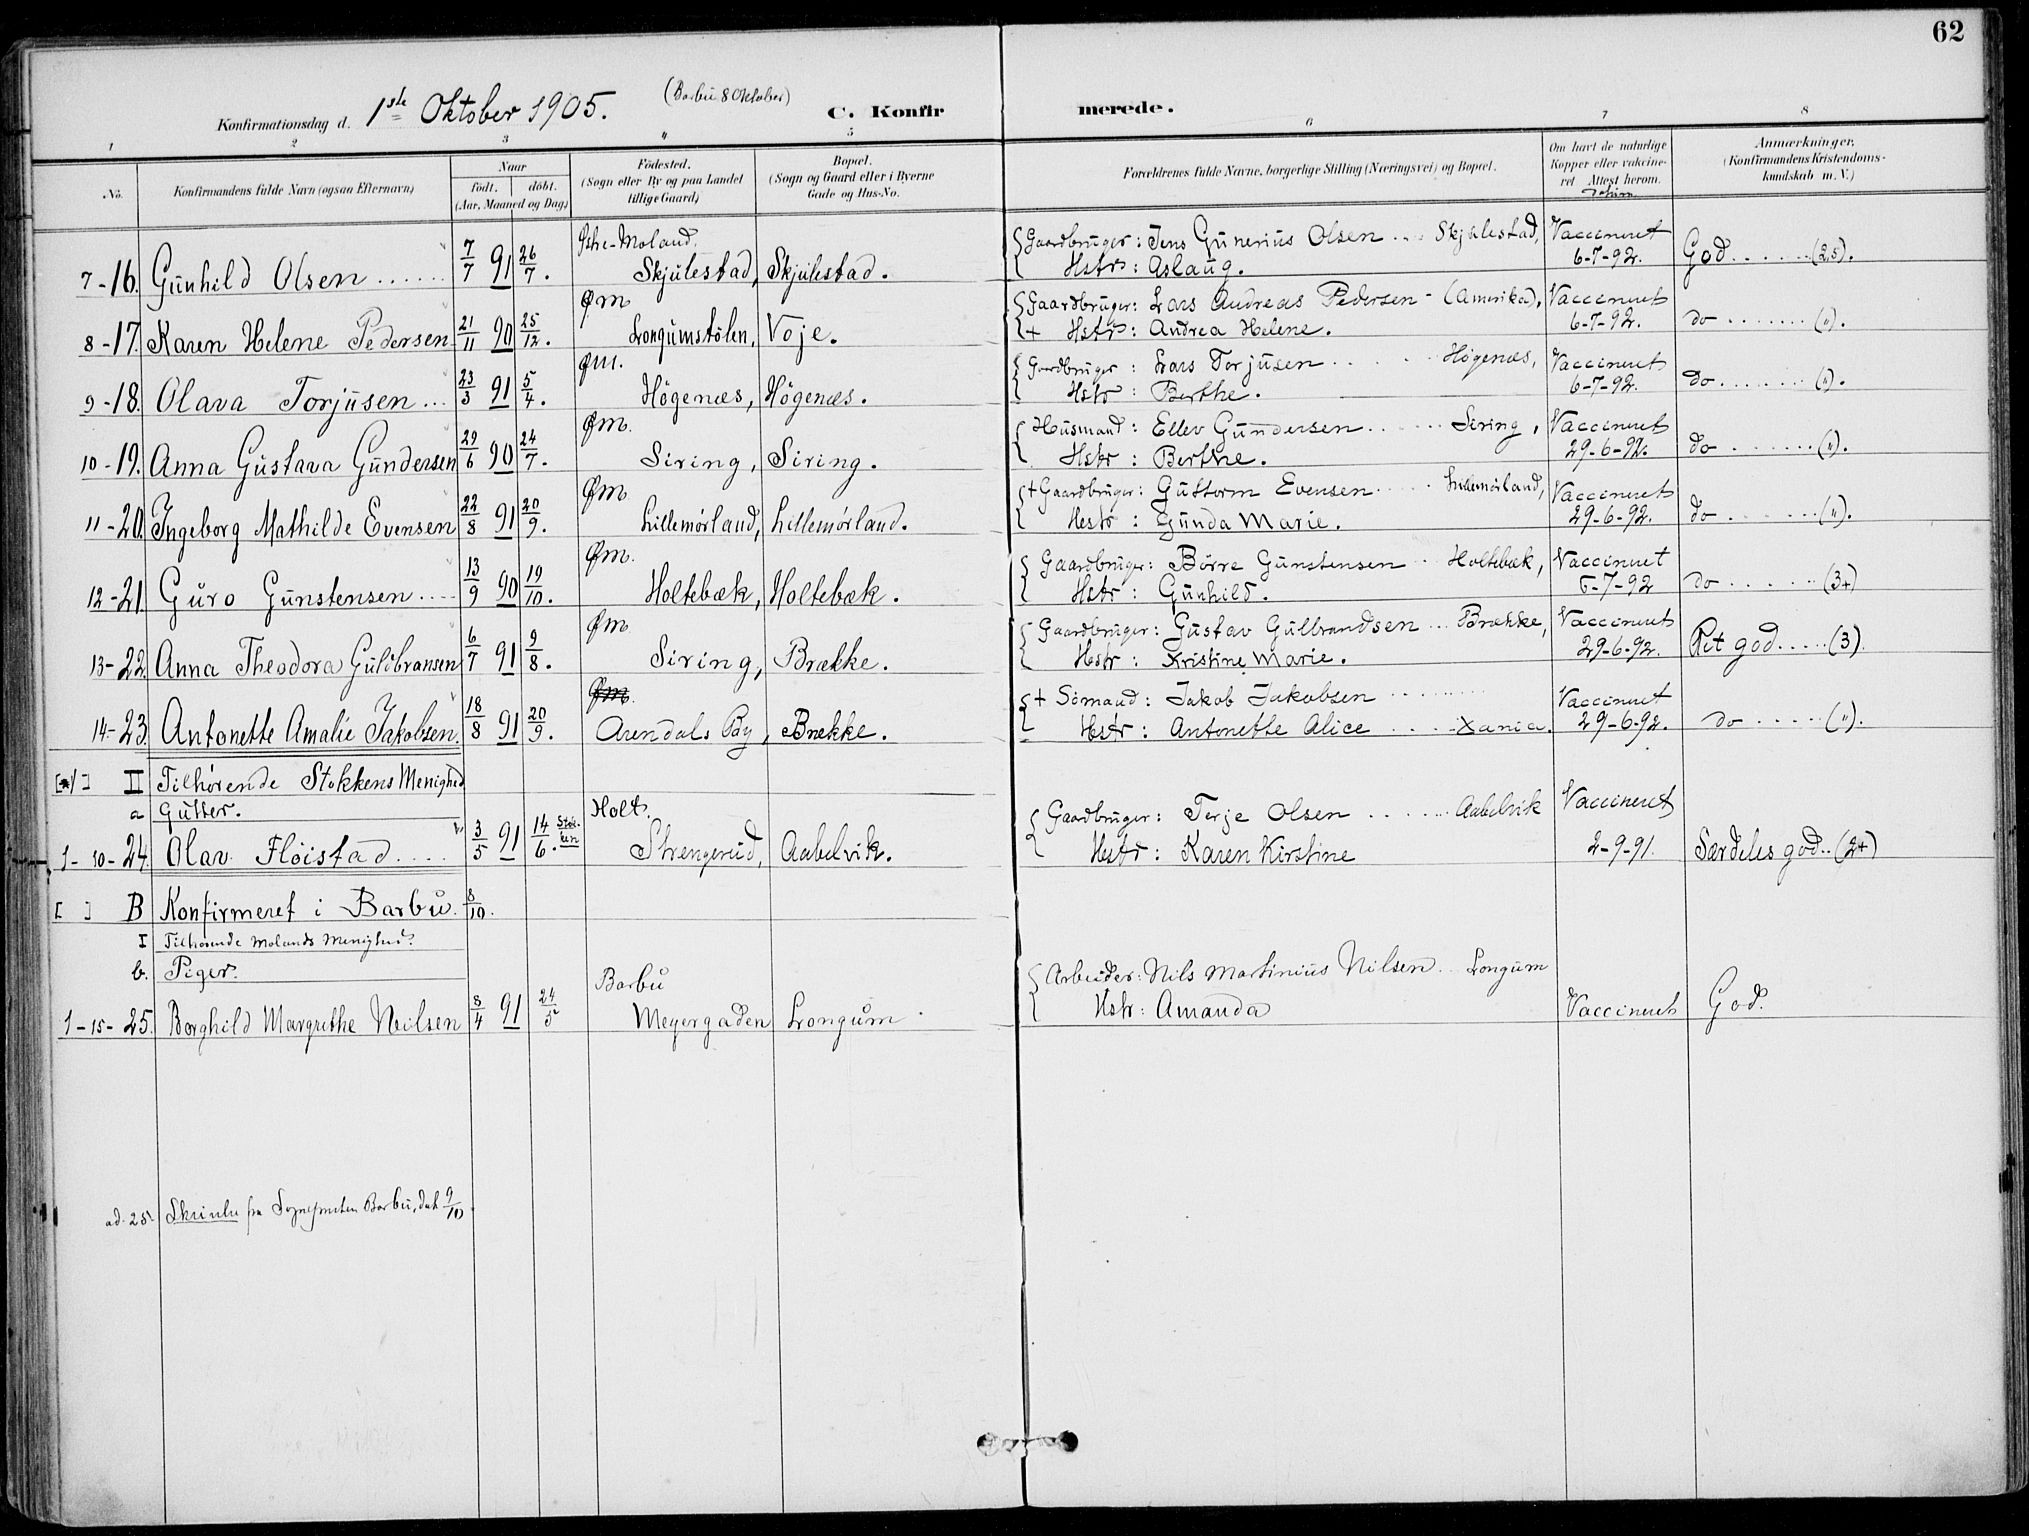 62
Konfirmationsdag d. 1ste Oktober 1905. (Barbu 8 Oktober) C. Konfirmerede.
1 2 3 4 5 6 7 8
No.
Konfirmandens fulde Navn (ogsaa Efternavn)
Naar
födt. döbt.
(Aar, Maaned og Dag)
Födested.
(Sogn eller By og paa Landet
tillige Gaard)
Bopæl.
(Sogn og Gaard eller i Byerne
Gade og Hus-No.
Forældrenes fulde Navne, borgerlige Stilling (Næringsvei) og Bopæl.
Om havt de naturlige
Kopper eller vaccine-
ret Attest herom.
Anmærkninger.
(Konfirmandens Kristendoms-
kundskab m. V.)
Østre-Moland. Gaardbruger: Jens Gunerius Olsen .... Skjulestad, Vaccineret
7-16. Gunhild Olsen ...... 7/7 91 26/7. Skjulestad, Skjulestad. Hstr: Aslaug. 6-7-92. God ...... (2,5).
Øm Gaardbruger: Lars Andreas Pedersen - (Amerika), Vaccineret
8-17. Karen Helene Pedersen 21/11 90 25/12. Longumstølen, Voje. + Hstr: Andrea Helene. 6-7-92. do ....... (").
Øm. Gaardbruger: Lars Torjusen ..... Högenæs, Vaccineret
9-18. Olava Torjusen ... 23/3 91 5/4. Högenæs, Högenæs. Hstr: Berthe. 6-7-92. do ....... (").
Øm. Husmand: Ellev Gundersen ...... Siring, Vaccineret
10-19. Anna Gustava Gundersen 29/6 90 24/7. Siring, Siring. Hstr: Berthe. 29-6-92. do ....... (").
Øm + Gaardbruger: Guttorm Evensen ..... Lillemørland, Vaccineret
11-20. Ingeborg Mathilde Evensen 22/8 91 20/9. Lillemørland, Lillemørland. Hstr: Gunda Marie. 29-6-92. do ....... (").
Øm. Gaardbruger: Börre Gunstensen .. Holtebæk, Vaccineret
12-21. Guro Gunstensen .... 13/9 90 19/10. Holtebæk, Holtebæk. Hstr: Gunhild. 6-7-92 do ...... (3+)
Øm. Gaardbruger: Gustav Gulbrandsen ... Brække, Vaccineret
13-22. Anna Theodora Guldbransen 6/7 91 9/8. Siring, Brække. Hstr: Kristine Marie. 29-6-92. Ret god ..... (3).
Øm. + Sömand: Jakob Jakobsen ........ Vaccineret
14-23. Antonette Amalie Jakobsen. 18/8 91 20/9. Arendals By, Brække. Hstr: Antonette Alice ..... Xania. 29-6-92. do ..... (").
II Tilhørende Stokkens Menighed
a Gutter. Holt. Gaardbruger: Terje Olsen ....... Aabelvik Vaccineret
1-10-24. Olav Flöistad .... 3/5 91 14/6. Strengerud, Aabelvik. Hstr: Karen Kirstine 2-9-91. Særdeles god.. (2+)
[ ] B Konfirmeret i Barbu. 8/10.
I Tilhørende Molands Menighed.
b. Piger. Barbu Arbeider: Nils Martinius Nilsen ... Longum
1-15-25. Borghild Margrethe Neilsen 8/4 91 24/5 Meyergaden Longum Hstr: Amanda Vaccineret God.
ad. 25. Skrivelse fra Sognepresten Barbu, dat 9/10.